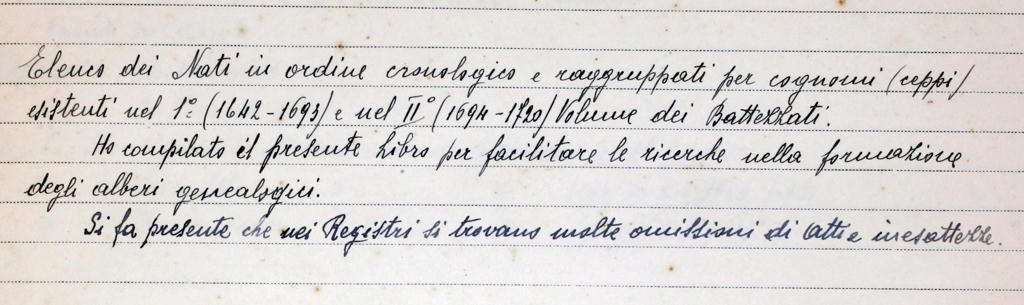 Elenco dei Nati in ordine cronologico e raggruppati per cognomi (ceppi)
esistenti nel 1° (1642-1693) e nel II° (1694-1720) Volume dei Battezzati.
Ho compilato il presente Libro per facilitare le ricerche nella formazione
degli alberi genealogici.
Si fa presente che nei Registri si trovano molte omissioni di atti e inesattezze.